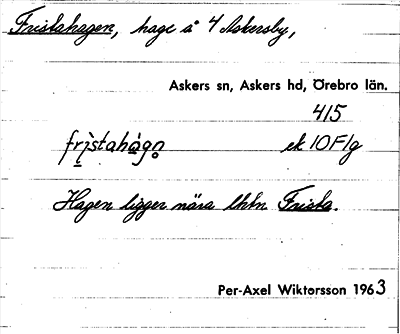 Fristahagen, hage å 4 Askersby,
Askers sn, Askers hd, Örebro län.
4/5
frì̱stahá̱gn̥ ek 10F1g
Hagen ligger nära lhtn Frista.
Per-Axel Wiktorsson 1963